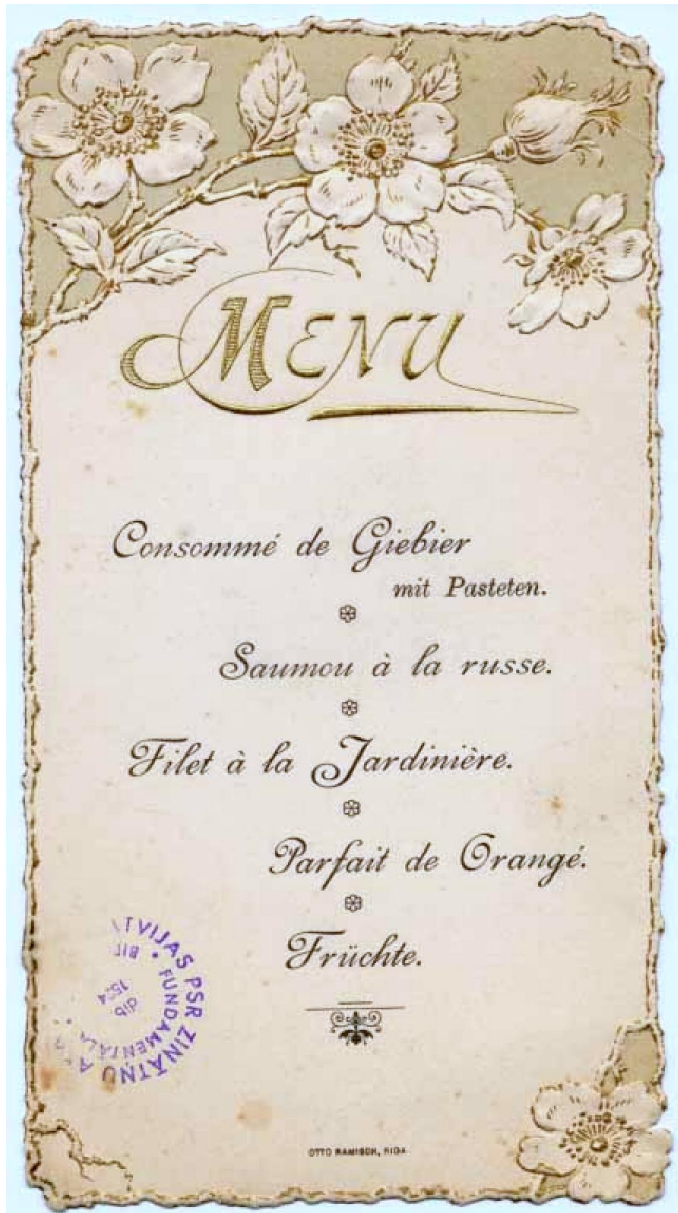 MENU
Consommé de Giebier
mit Pasteten.
Saumou à la russe.
Filet à la Jardinière.
Parfait de Orangé.
Früchte.
LATVIJAS PSR ZINĀTŅU
FUNDAMENTĀLĀ
dib
OTTO RAMISCH, RIGA